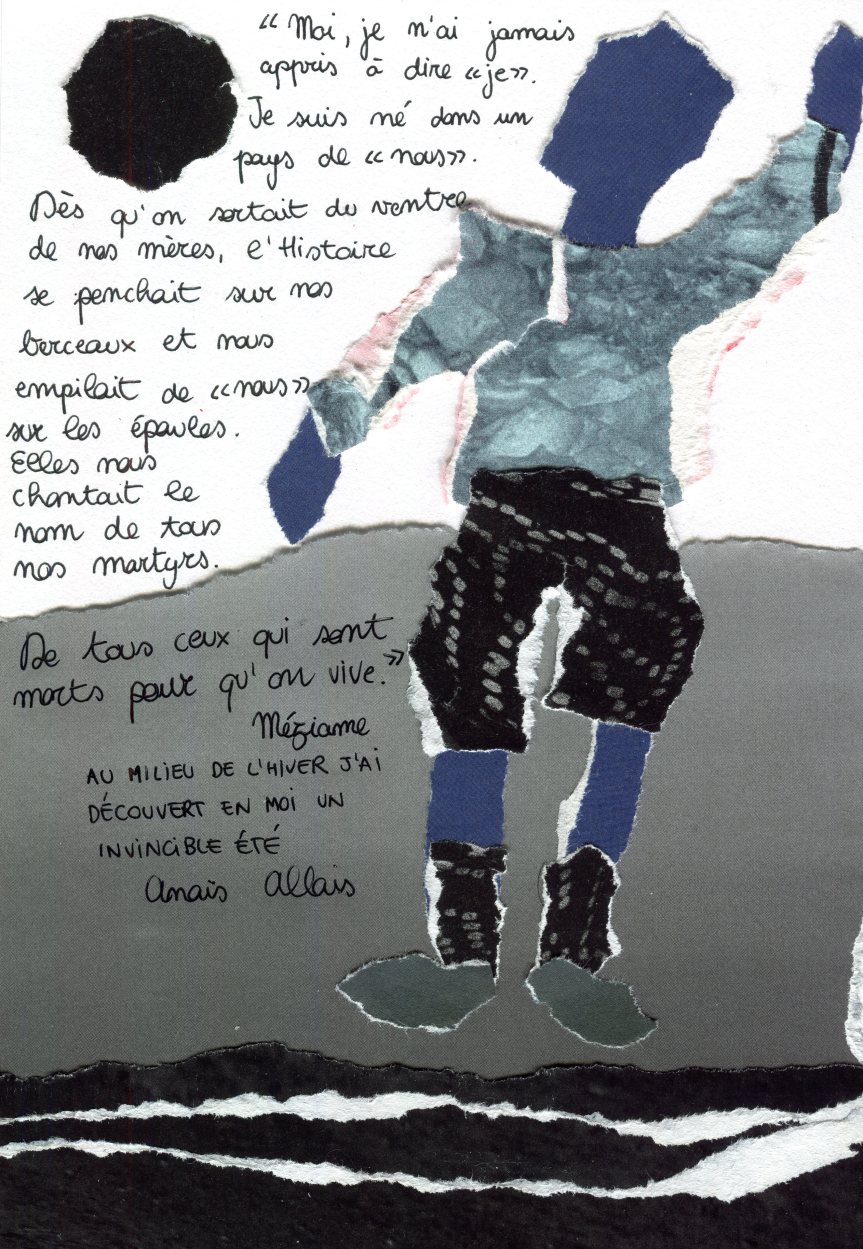 “ Moi, je n'ai jamais
appris à dire «je».
Je suis né dans un
pays de «nous».
Dès qu'on sortait du ventre
de nos mères, l'Histoire
se penchait sur nos
berceaux et nous
empilait de «nous»
sur les épaules.
Elles nous
chantait le
nom de tous
nos martyrs.
De tous ceux qui sont
morts pour qu'on vive.”
Méziame
AU MILIEU DE L'HIVER J'AI
DÉCOUVERT EN MOI UN
INVINCIBLE ÉTÉ
Anaïs Allais